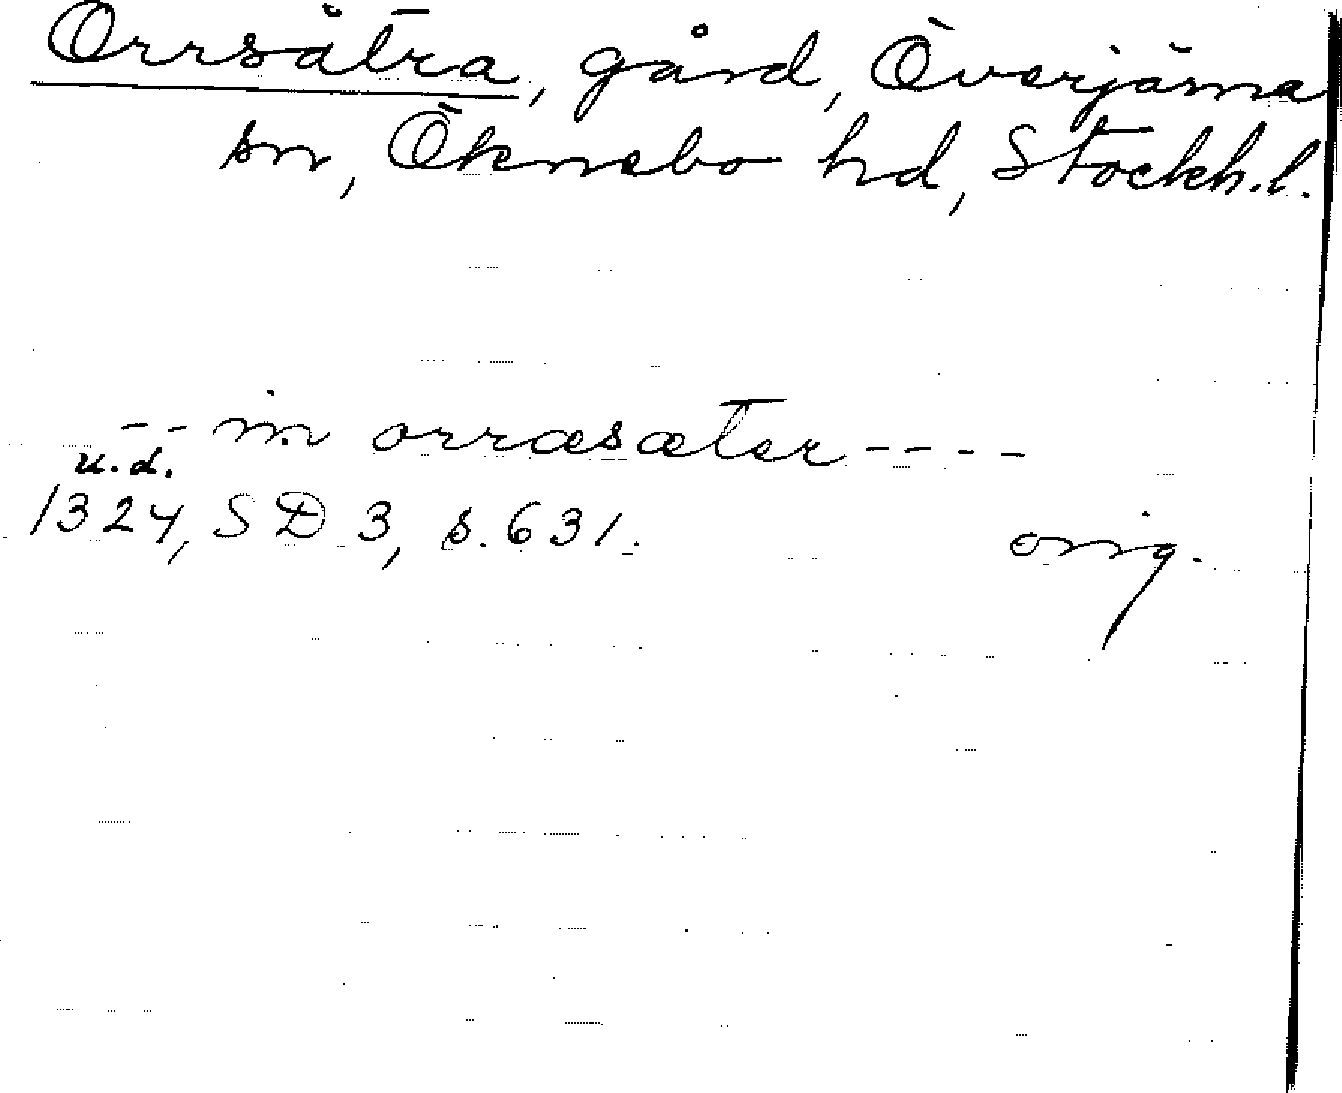 Orrsätra, gård, Överjärna
sn, Öknebo hd, Stockh.l.
-- in orræsæter ----
u.d.
1324, SD 3, s. 631.
orig.